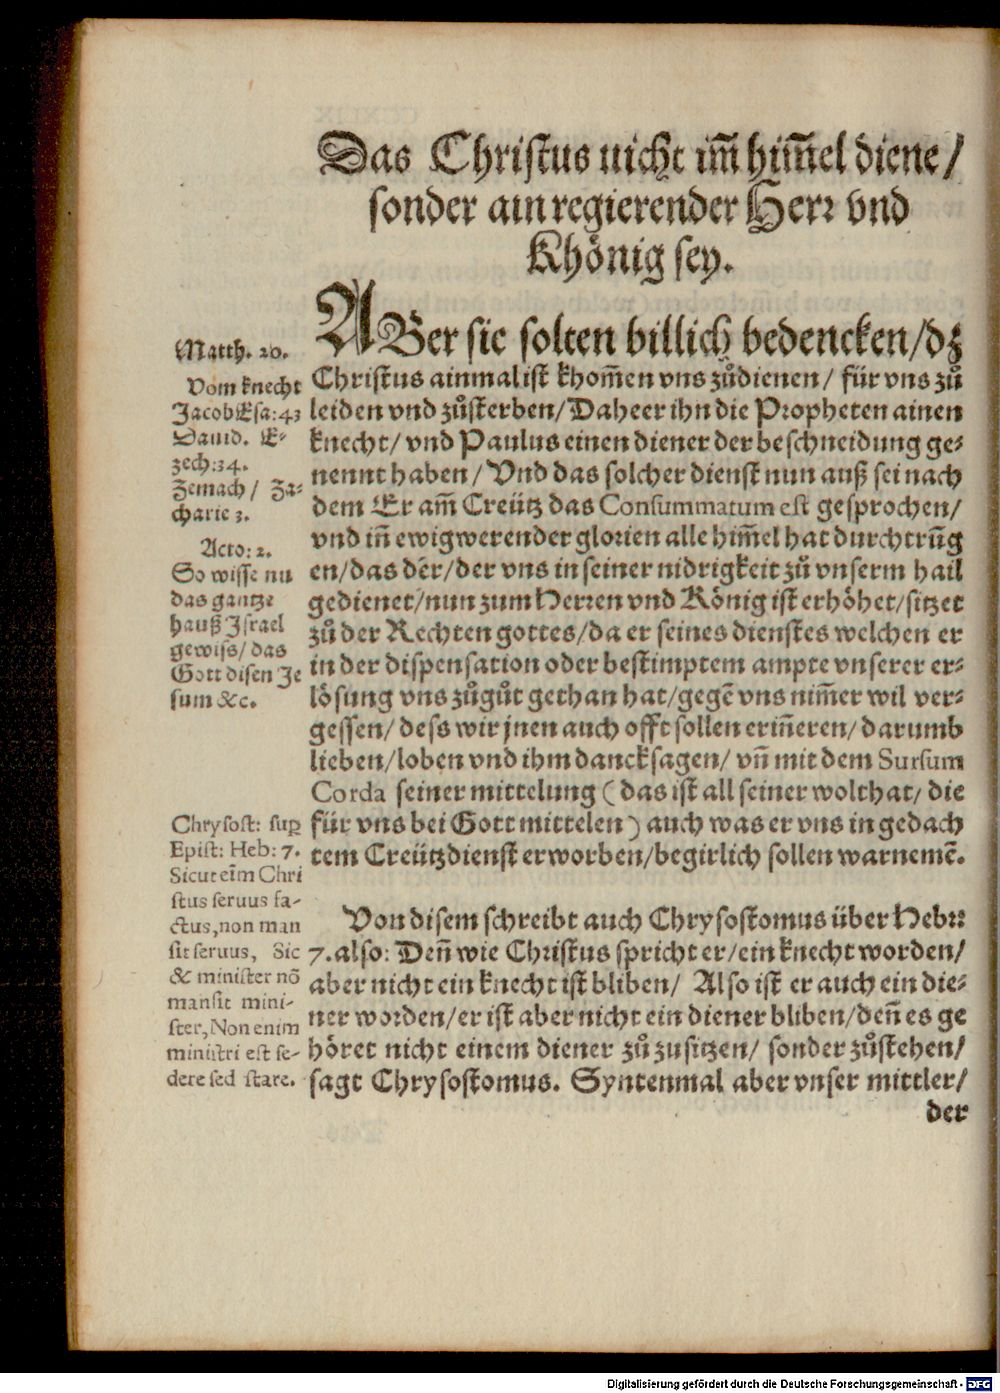 Das Christus nicht im̃ him̃el diene/
sonder ain regierender Herr vnd
Khönig sey.
ABer sie solten billich bedencken/dz
Christus ainmal ist khom̃en vns zůdienen/ für vns zů
leiden vnd zůsterben/Daheer ihn die Propheten ainen
knecht/ vnd Paulus einen diener der beschneidung ge-
nennt haben/ Vnd das solcher dienst nun auß sei nach
dem Er am̃ Creütz das Consummatum est gesprochen/
vnd iñ ewigwerender glorien alle him̃el hat durchtrũg
en/das dẽr/der vns in seiner nidrigkeit zů vnserm hail
gedienet/nun zum Herren vnd König ist erhöhet/sitzet
zů der Rechten gottes/da er seines dienstes welchen er
in der dispensation oder bestimptem ampte vnserer er-
lösung vns zůgůt gethan hat/gegẽ vns nim̃er wil ver-
gessen/ dess wir jnen auch offt sollen eriñeren/ darumb
lieben/loben vnd ihm dancksagen/ vñ mit dem Sursum
Corda seiner mittelung (das ist all seiner wolthat/ die
für vns bei Gott mittelen) auch was er vns in gedach
tem Creützdienst erworben/begirlich sollen warnemẽ.
Von disem schreibt auch Chrysostomus über Hebr:
7. also: Deñ wie Christus spricht er/ein knecht worden/
aber nicht ein knecht ist bliben/ Also ist er auch ein die-
ner worden/er ist aber nicht ein diener bliben/deñ es ge
höret nicht einem diener zů zusitzen/ sonder zůstehen/
sagt Chrysostomus. Syntenmal aber vnser mittler/
der
Matth. 20.
Vom knecht
Jacob Esa: 43
Dauid. E-
zech: 34.
Zemach/ Za-
charie 3.
Acto: 2.
So wisse nu
das gantze
hauß Israel
gewiss/ das
Gott disen Je
sum &c.
Chrysost: sup
Epist: Heb: 7.
Sicut eĩm Chri
stus seruus fa-
ctus, non man
sit seruus, Sic
& minister nõ
mansit mini-
ster, Non enim
ministri est se-
dere sed stare.
Digitalisierung gefördert durch die Deutsche Forschungsgemeinschaft - DFG